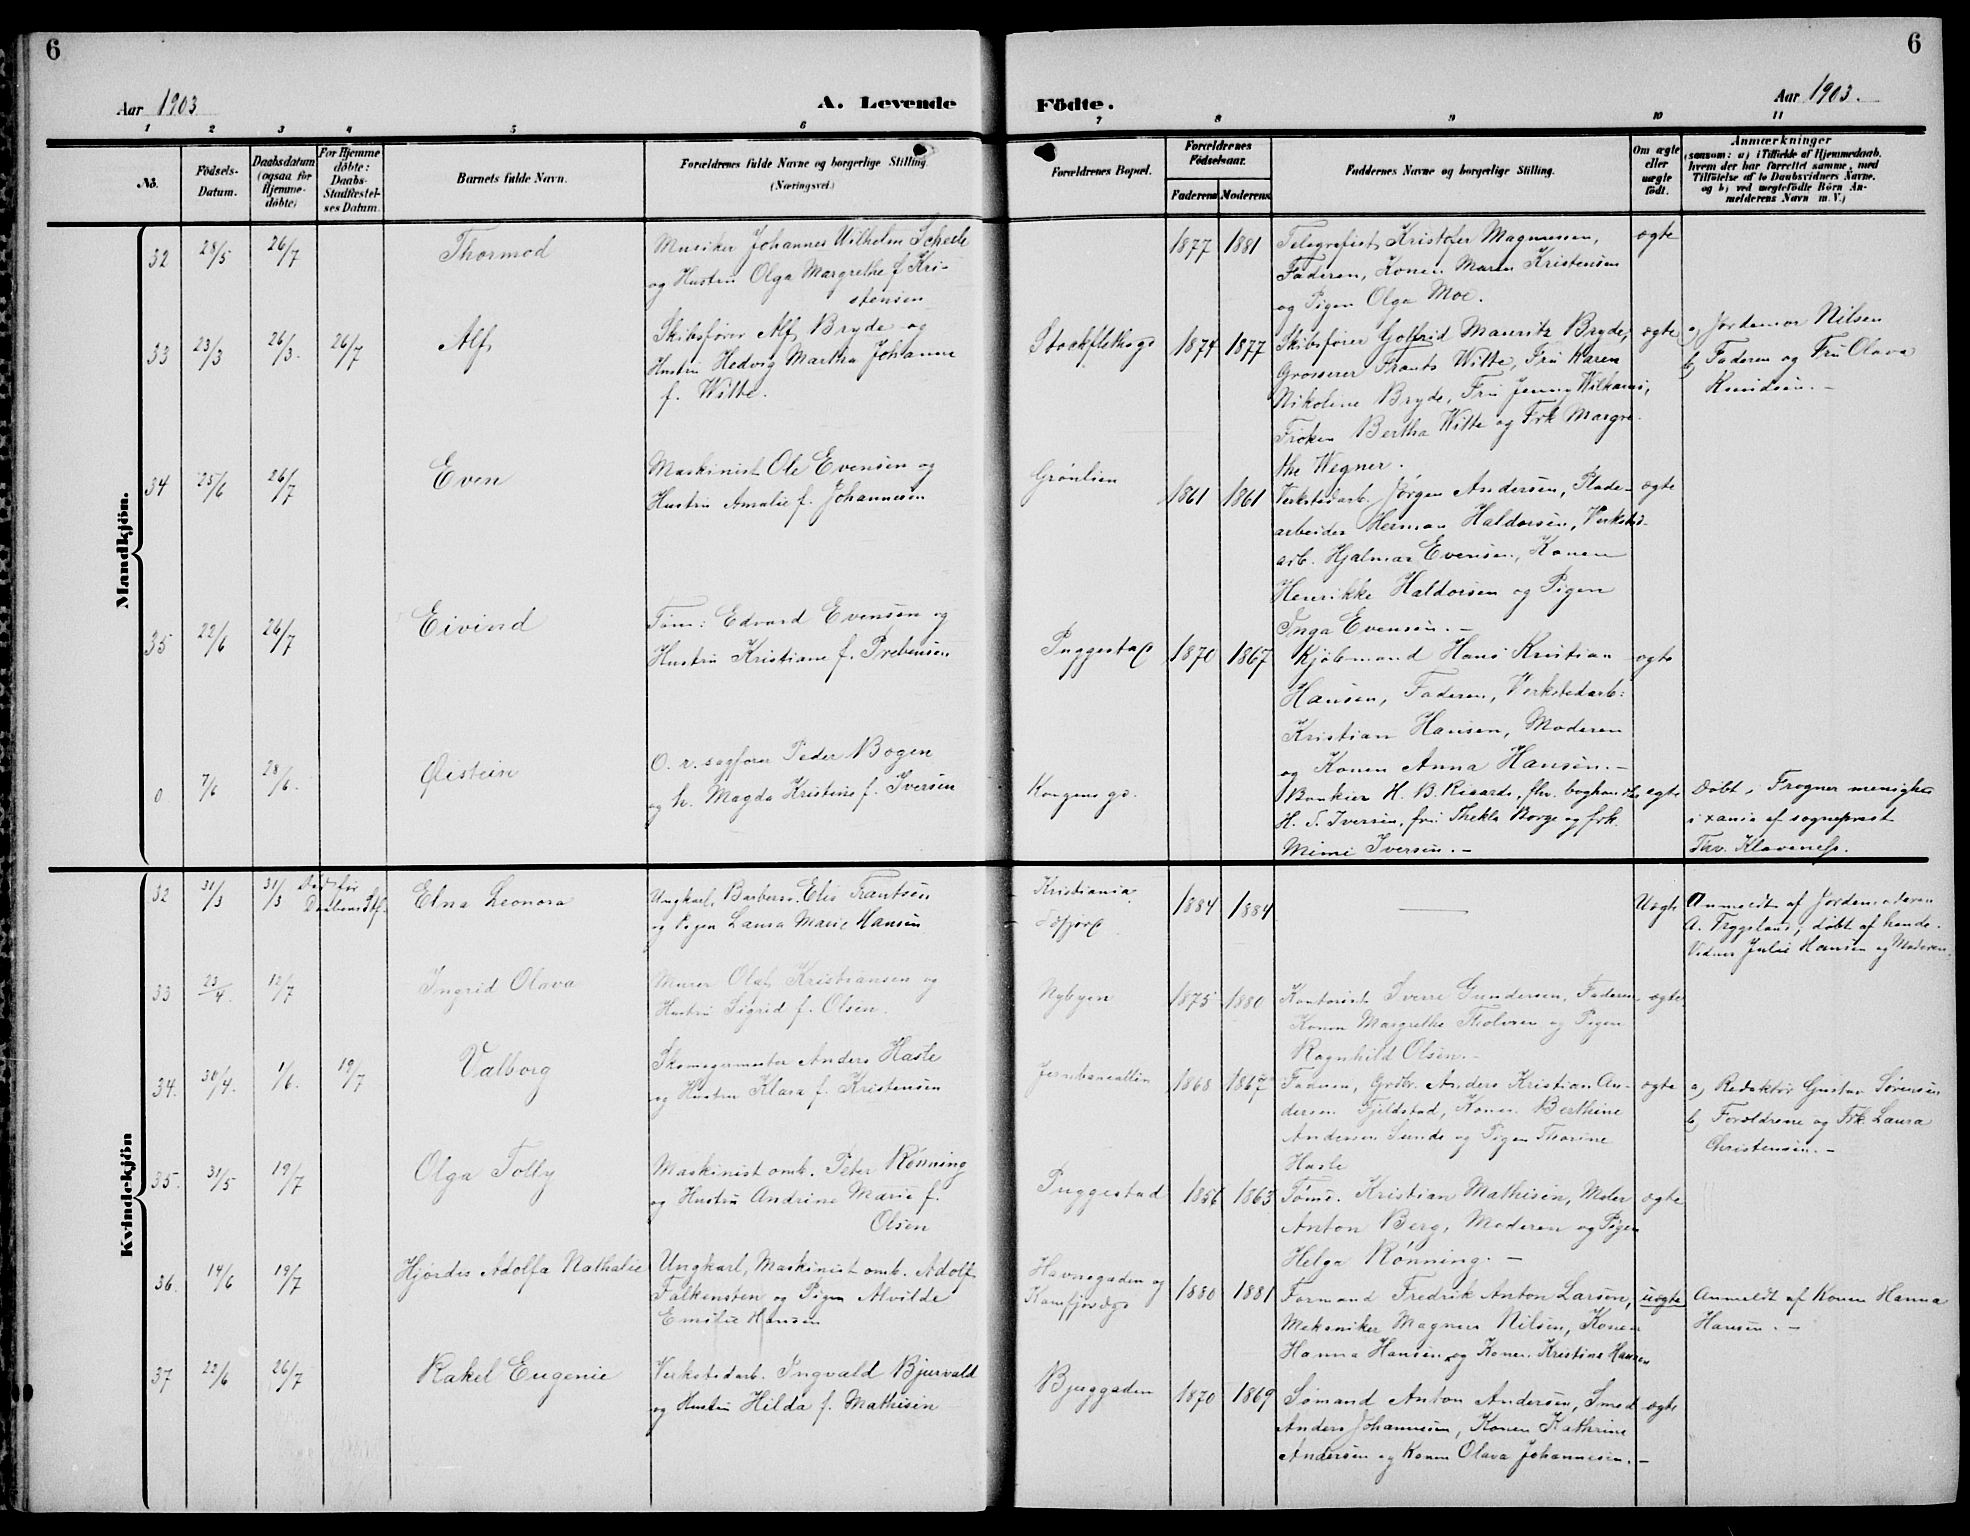 6
6
Aar 1903
A. Levende
Födte.
Aar 1903.
1 2 3 4 5 6 7 8 9 10 11
No.
Födsels-
Datum.
Daabsdatum
(ogsaa for
Hjemme-
döbte)
For Hjemme
döbte:
Daabs-
Stadfæstel-
ses Datum.
Barnets fulde Navn.
Forældrenes fulde Navne og borgerlige Stilling
(Næringsvei.)
Forældrenes Bopæl.
Forældrenes
Födselsaar.
Faderens
Moderens
Faddernes Navne og borgerlige Stilling.
Om ægte
eller
uægte
födt.
Anmærkninger
(saasom: a) i Tilfælde af Hjemmedaab,
hvem der har forrettet samme, med
Tilföielse af to Daabsvidners Navne.
og b) ved uægtefödte Börn An-
melderens Navn m. V.)
Mandkjön.
32 28/5 26/7 Thormod
Musiker Johannes Wilhelm Scheele
og Hustru Olga Margrethe f. Kri-
stensen
1877 1881
Telegrafist Kristofer Magnussen,
Faderen, Konen Maren Kristensen
og Pigen Olga Moe.
ægte
33 23/3 26/3. 26/7 Alf
Skibsfører Alf Bryde og
Hustru Hedvig Martha Johanne
f. Witte.
Stockflethsgd
1874 1877
Skibsfører Gotfrid Mauritz Bryde,
Grosserer Frants Witte, Fru Karen
Nikoline Bryde, Fru Jenny
Frøken Bertha Witte og Frk Margre-
the Wegner.
ægte
a) Jordemor Nilsen
b) Faderen og Fru Olava
Knudsen. -
34 25/6 26/7 Even
Maskinist Ole Evensen og
Hustru Amalie f. Johannesen
Grønlien
1861 1861
Verkstedarb. Jørgen Andersen, Plade-
arbeider Herman Haldorsen, Verksted-
arb. Hjalmar Evensen, Konen
Henrikke Haldorsen og Pigen
Inga Evensen. -
ægte
35 22/6 26/7 Eivind
Tøm: Edvard Evensen og
Hustru Kristiane f. Prebensen
Puggestad
1870 1867
Kjøbmand Hans Kristian
Hansen, Faderen, Verkstedarb:
Kristian Hansen, Moderen
og Konen Anna Hansen. -
ægte
0 7/6 28/6. Øistein
O. r. sagfører Peder Bogen
og h. Magda Kristine f. Iversen
Kongens gd.
Bankier H. B. Ricard, fhv. boghandler
H. T. Iversen, fru Thekla Borge og frk.
Mimi Iversen. -
egte
Døbt i Frogner menighed
i Xania af sogneprest
Thv. Klaveness.
Kvindekjön
32 31/3 31/3 Død før
Daabens Stf.
Elna Leonora
Ungkarl, Barbersv. Elis Frantsen
og Pigen Laura Marie Hansen
Kristiania
Tofjord
1884 1884
Uægte
Anmeldt af Jordemoderen
A. Tryggeland, døbt af hende.
Vidner Julie Hansen og Moderen.
33 23/4. 12/7 Ingrid Olava
Murer Olaf Kristiansen og
Hustru Sigrid f. Olsen.
Nybyen
1875 1880
Kontorist Sverre Gundersen, Faderen
Konen Margrethe Tholvsen og Pigen
Ragnhild Olsen. -
ægte
34. 30/4. 1/6. 19/7 Valborg
Skomagermester Anders Hasle
og Hustru Klara f. Kristensen
Jernbanealleen
1868 1867
Faderen, Grdbr. Anders Kristian An-
dersen Fjeldstad, Konen Berthine
Andersen Sunde og Pigen Thorine
Hasle
ægte
a) Redaktør Gustav Sørensen
b) Forældrene og Frk. Laura
Christensen. -
35. 31/5 19/7 Olga Tolly
Maskinist omb. Peter Rønning
og Hustru Andrine Marie f.
Olsen
Puggestad
1856 1863
Tøms. Kristian Mathisen, Maler
Anton Berg, Moderen og Pigen
Helga Rønning. -
ægte
36. 14/6 19/7 Hjørdis Adolfa Nathalie
Ungkarl, Maskinist omb. Adolf
Falkensten og Pigen Alvilde
Emilie Hansen
Havnegaden og
Kamfjordgd
1880 1881
Formand Fredrik Anton Larsen,
Mekaniker Magnus Nilsen, Konen
Hanna Hansen og Konen Kristine Hansen
uægte
Anmeldt af Konen Hanna
Hansen. -
37 22/6 26/7 Rakel Eugenie
Verkstedarb. Ingvald Bjurvald
og Hustru Hilda f. Mathisen
Bjerggaden
1870 1869
Sømand Anton Andersen, Smed
Anders Johannesen, Konen Kathrine
Andersen og Konen Olava Johannesen. -
ægte